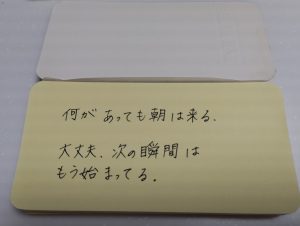 何があっても朝は来る.
大丈夫、次の瞬間は
もう始まってる.